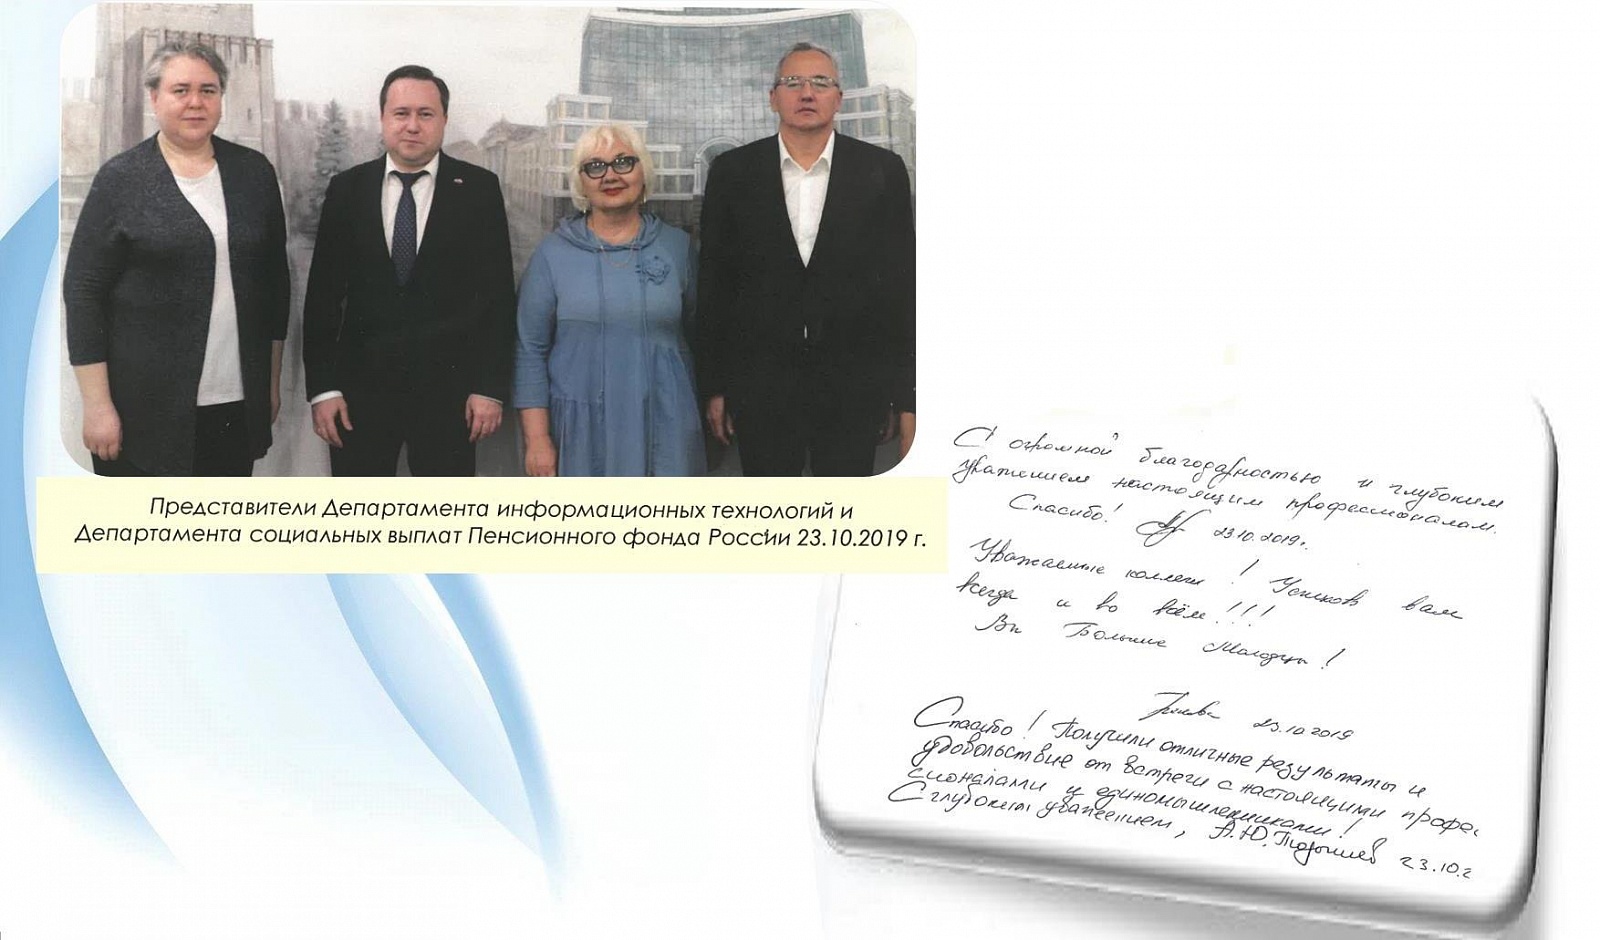 Представители Департамента информационных технологий и
Департамента социальных выплат Пенсионного фонда России 23.10.2019 г.
С огромной благодарностью и глубоким
уважением настоящим профессионалам.
Спасибо! 23.10.2019г.
Уважаемые коллеги! Успехов вам
всегда и во всём!!!
Вы Большие Молодцы!
23.10 2019
Спасибо! Получили отличные результаты и
удовольствие от встречи с настоящими профес
сионалами и единомышленниками!
С глубоким уважением, А.Ю. 23.10.2